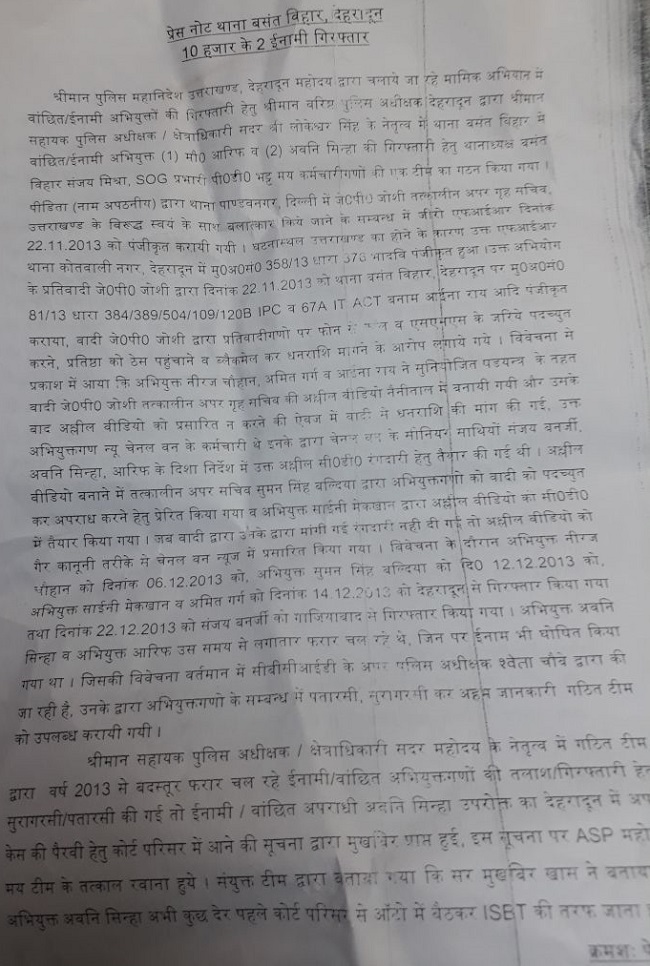 प्रेस नोट थाना बसंत बिहार, देहरादून
10 हजार के 2 ईनामी गिरफ्तार
श्रीमान पुलिस महानिदेश उत्तराखण्ड, देहरादून महोदय द्वारा चलाये जा रहे मासिक अभियान में
वांछित/ईनामी अभियुक्तों की गिरफ्तारी हेतु श्रीमान वरिष्ठ पुलिस अधीक्षक देहरादून द्वारा श्रीमान
सहायक पुलिस अधीक्षक / क्षेत्राधिकारी सदर श्री लोकेश्वर सिंह के नेतृत्व में थाना बसंत बिहार में
वांछित/ईनामी अभियुक्त (1) मौ0 आरिफ व (2) अवनि सिन्हा की गिरफ्तारी हेतु थानाध्यक्ष बसंत
विहार संजय मिश्रा, SOG प्रभारी पी0डी0 भट्ट मय कर्मचारीगणों की एक टीम का गठन किया गया।
पीडिता (नाम अपठनीय) द्वारा थाना पाण्डवनगर, दिल्ली में जे0पी0 जोशी तत्कालीन अपर गृह सचिव,
उत्तराखण्ड के विरूद्ध स्वयं के साथ बलात्कार किये जाने के सम्बन्ध में जीरो एफआईआर दिनांक
22.11.2013 को पंजीकृत करायी गयी। घटनास्थल उत्तराखण्ड का होने के कारण उक्त एफआईआर
थाना कोतवाली नगर, देहरादून में मु0अ0सं0 358/13 धारा 376 भादवि पंजीकृत हुआ।उक्त अभियोग
के प्रतिवादी जे0पी0 जोशी द्वारा दिनांक 22.11.2013 को थाना बसंत बिहार, देहरादून पर मु0अ0सं0
81/13 धारा 384/389/504/109/120B IPC व 67A IT ACT बनाम आईना राय आदि पंजीकृत
कराया, वादी जे0पी0 जोशी द्वारा प्रतिवादीगणो पर फोन व एसएमएस के जरिये पदच्युत
करने, प्रतिष्ठा को ठेस पहुंचाने व ब्लैकमेल कर धनराशि मांगने के आरोप लगाये गये। विवेचना में
प्रकाश में आया कि अभियुक्त नीरज चौहान, अमित गर्ग व आईना राय ने सुनियोजित षडयन्त्र के तहत
वादी जे0पी0 जोशी तत्कालीन अपर गृह सचिव की अश्लील वीडियो नैनीताल में बनायी गयी और उसके
बाद अश्लील वीडियो को प्रसारित न करने की ऐवज में वादी से धनराशि की मांग की गई, उक्त
अभियुक्तगण न्यू चेनल वन के कर्मचारी थे इनके द्वारा चेनल वन के सीनियर साथियों संजय बनर्जी,
अवनि सिन्हा, आरिफ के दिशा निर्देश में उक्त अश्लील सी0डी0 रंगदारी हेतु तैयार की गई थी। अश्लील
वीडियो बनाने में तत्कालीन अपर सचिव सुमन सिंह बल्दिया द्वारा अभियुक्तगणो को वादी को पदच्युत
कर अपराध करने हेतु प्रेरित किया गया व अभियुक्त साईनी मेकखान द्वारा अश्लील वीडियो का सी0डी0
में तैयार किया गया। जब वादी द्वारा उनके द्वारा मांगी गई रंगदारी नही दी गई तो अश्लील वीडियो को
गैर कानूनी तरीके से चेनल वन न्यूज में प्रसारित किया गया। विवेचना के दौरान अभियुक्त नीरज
चौहान को दिनांक 06.12.2013 को, अभियुक्त सुमन सिंह बल्दिया को दि0 12.12.2013 को,
अभियुक्त साईनी मेकखान व अमित गर्ग को दिनांक 14.12.2013 को देहरादून से गिरफ्तार किया गया
तथा दिनांक 22.12.2013 को संजय बनर्जी को गाजियाबाद से गिरफ्तार किया गया। अभियुक्त अवनि
सिन्हा व अभियुक्त आरिफ उस समय से लगातार फरार चल रहे थे, जिन पर ईनाम भी घोषित किया
गया था। जिसकी विवेचना वर्तमान में सीबीसीआईडी के अपर पुलिस अधीक्षक श्वेता चौबे द्वारा की
जा रही है, उनके द्वारा अभियुक्तगणो के सम्बन्ध में पतारसी, सुरागरसी कर अहम जानकारी गठित टीम
को उपलब्ध करायी गयी।
श्रीमान सहायक पुलिस अधीक्षक / क्षेत्राधिकारी सदर महोदय के नेतृत्व में गठित टीम
द्वारा वर्ष 2013 से बदस्तूर फरार चल रहे ईनामी/वांछित अभियुक्तगणों की तलाश/गिरफ्तारी हेतु
सुरागरसी/पतारसी की गई तो ईनामी / वांछित अपराधी अवनि सिन्हा उपरोक्त का देहरादून में अप
केस की पैरवी हेतु कोर्ट परिसर में आने की सूचना द्वारा मुखबिर प्राप्त हुई, इस सूचना पर ASP महो
मय टीम के तत्काल रवाना हुये। संयुक्त टीम द्वारा बताया गया कि सर मुखबिर खास ने बताया
अभियुक्त अवनि सिन्हा अभी कुछ देर पहले कोर्ट परिसर से ऑटो में बैठकर ISBT की तरफ जाता
क्रमशः पे